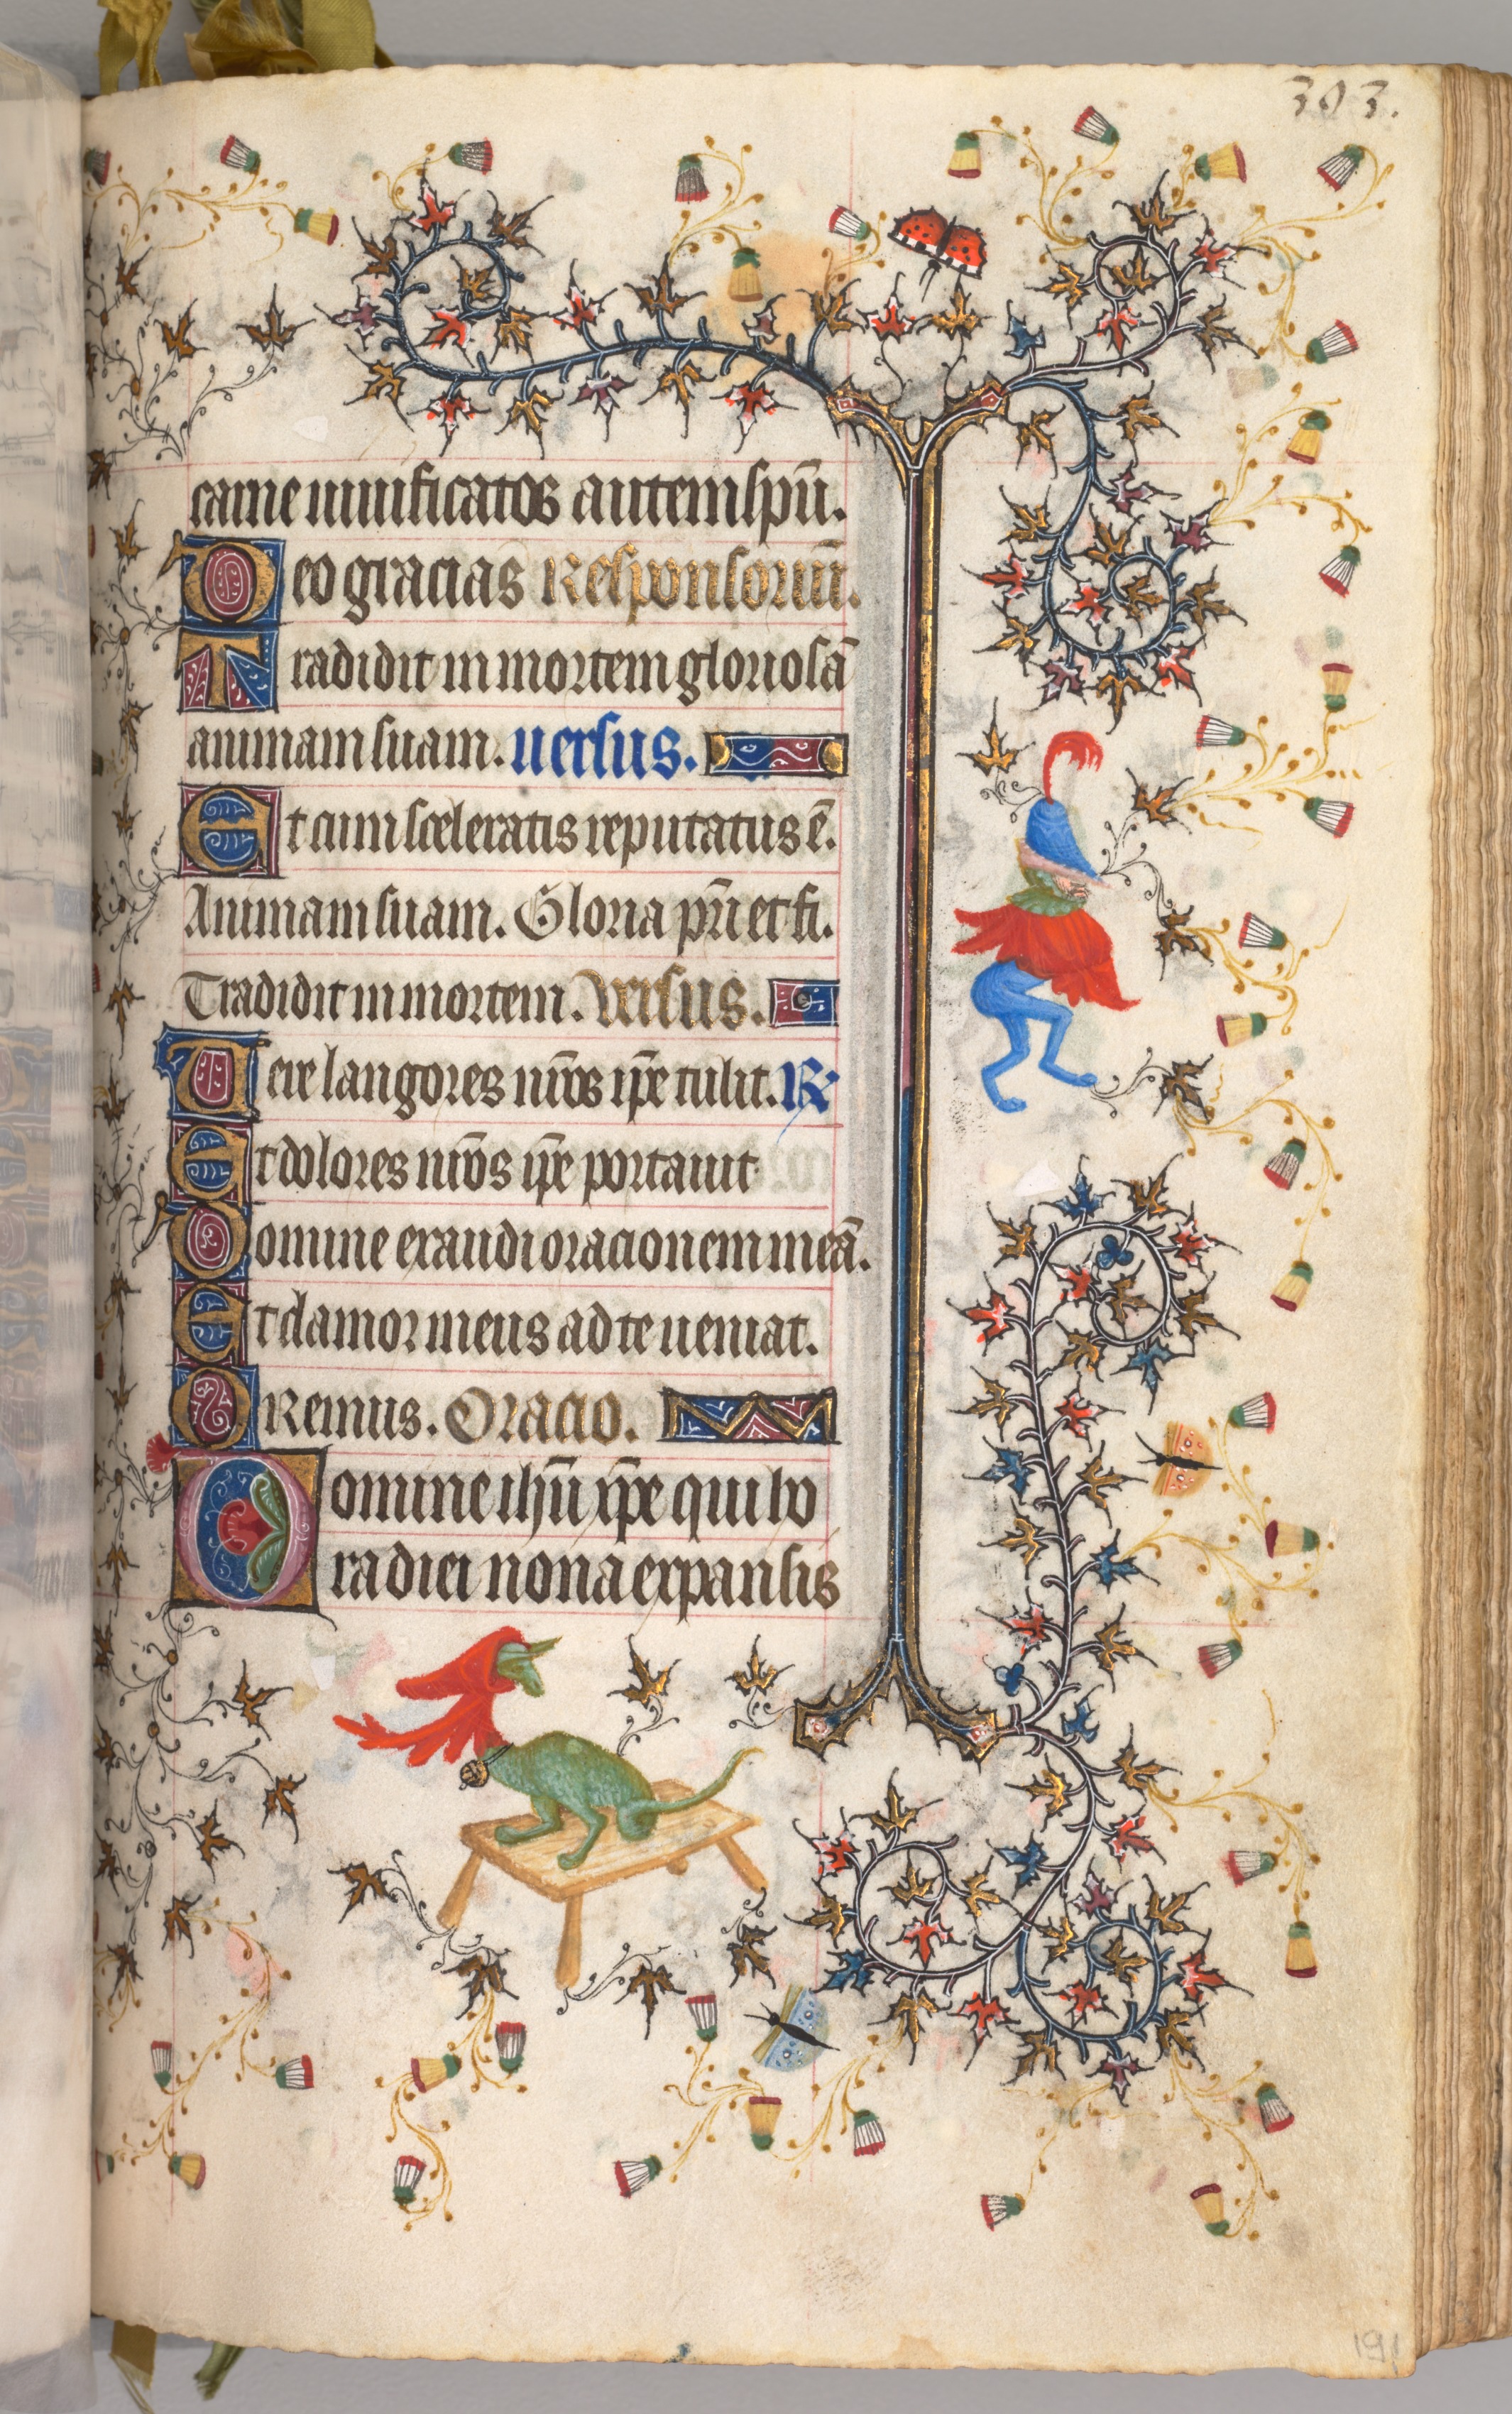 303.
carne uiuificatos autem spū.
Deo gracias Responsoriū.
Tradidit in mortem gloriosā
animam suam. uersus.
Et cum sceleratis reputatus ē.
Animam suam. Gloria pr̄i et fi.
Tradidit in mortem. Versus.
Uere langores nr̄os ip̄e tulit. R
Et dolores nr̄os ip̄e portauit
Domine exaudi oracionem meā.
Et clamor meus ad te ueniat.
ORemus. Oracio.
Domine ihū xp̄e qui ho
ra diei nona expansis
191